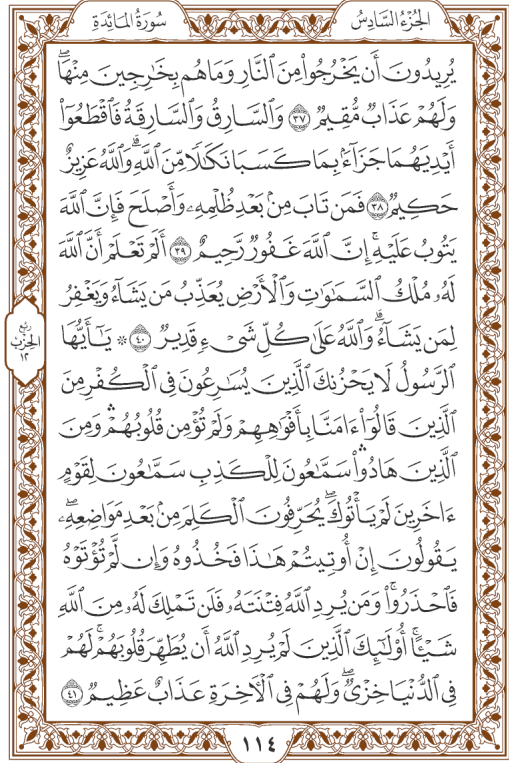 الجُزْءُ السَّادِسُ
سُورَةُ المَائِدَةِ
يُرِيدُونَ أَن يَخْرُجُوا۟ مِنَ ٱلنَّارِ وَمَا هُم بِخَٰرِجِينَ مِنْهَا ۖ
وَلَهُمْ عَذَابٌ مُّقِيمٌ ٣٧ وَٱلسَّارِقُ وَٱلسَّارِقَةُ فَٱقْطَعُوٓا۟
أَيْدِيَهُمَا جَزَآءًۢ بِمَا كَسَبَا نَكَٰلًا مِّنَ ٱللَّهِ ۗ وَٱللَّهُ عَزِيزٌ
حَكِيمٌ ٣٨ فَمَن تَابَ مِنۢ بَعْدِ ظُلْمِهِۦ وَأَصْلَحَ فَإِنَّ ٱللَّهَ
يَتُوبُ عَلَيْهِ ۗ إِنَّ ٱللَّهَ غَفُورٌ رَّحِيمٌ ٣٩ أَلَمْ تَعْلَمْ أَنَّ ٱللَّهَ
لَهُۥ مُلْكُ ٱلسَّمَٰوَٰتِ وَٱلْأَرْضِ يُعَذِّبُ مَن يَشَآءُ وَيَغْفِرُ
لِمَن يَشَآءُ ۗ وَٱللَّهُ عَلَىٰ كُلِّ شَىْءٍ قَدِيرٌ ٤٠ ۞ يَٰٓأَيُّهَا
ٱلرَّسُولُ لَا يَحْزُنكَ ٱلَّذِينَ يُسَٰرِعُونَ فِى ٱلْكُفْرِ مِنَ
ٱلَّذِينَ قَالُوٓا۟ ءَامَنَّا بِأَفْوَٰهِهِمْ وَلَمْ تُؤْمِن قُلُوبُهُمْ ۛ وَمِنَ
ٱلَّذِينَ هَادُوا۟ ۛ سَمَّٰعُونَ لِلْكَذِبِ سَمَّٰعُونَ لِقَوْمٍ
ءَاخَرِينَ لَمْ يَأْتُوكَ ۖ يُحَرِّفُونَ ٱلْكَلِمَ مِنۢ بَعْدِ مَوَاضِعِهِۦ ۖ
يَقُولُونَ إِنْ أُوتِيتُمْ هَٰذَا فَخُذُوهُ وَإِن لَّمْ تُؤْتَوْهُ
فَٱحْذَرُوا۟ ۚ وَمَن يُرِدِ ٱللَّهُ فِتْنَتَهُۥ فَلَن تَمْلِكَ لَهُۥ مِنَ ٱللَّهِ
شَيْـًٔا ۚ أُو۟لَٰٓئِكَ ٱلَّذِينَ لَمْ يُرِدِ ٱللَّهُ أَن يُطَهِّرَ قُلُوبَهُمْ ۚ لَهُمْ
فِى ٱلدُّنْيَا خِزْىٌ ۖ وَلَهُمْ فِى ٱلْءَاخِرَةِ عَذَابٌ عَظِيمٌ ٤١
ربع
الحزب
١٢
١١٤